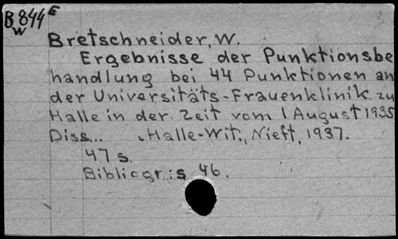 B844E
W
Bretschneider, W.
Ergebnisse der Punktionsbe
handlung bei 44 Punktionen an
der Universitäts-Frauenklinik zu
Halle in der Zeit vom 1 August 1935
Diss... Halle-Wit., Nieft, 1937.
47 s.
Bibliogr.: s 46.